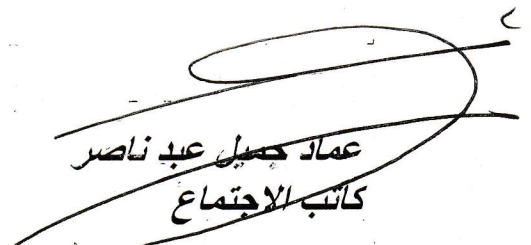 عماد جميل عبد ناصر
كاتب الاجتماع